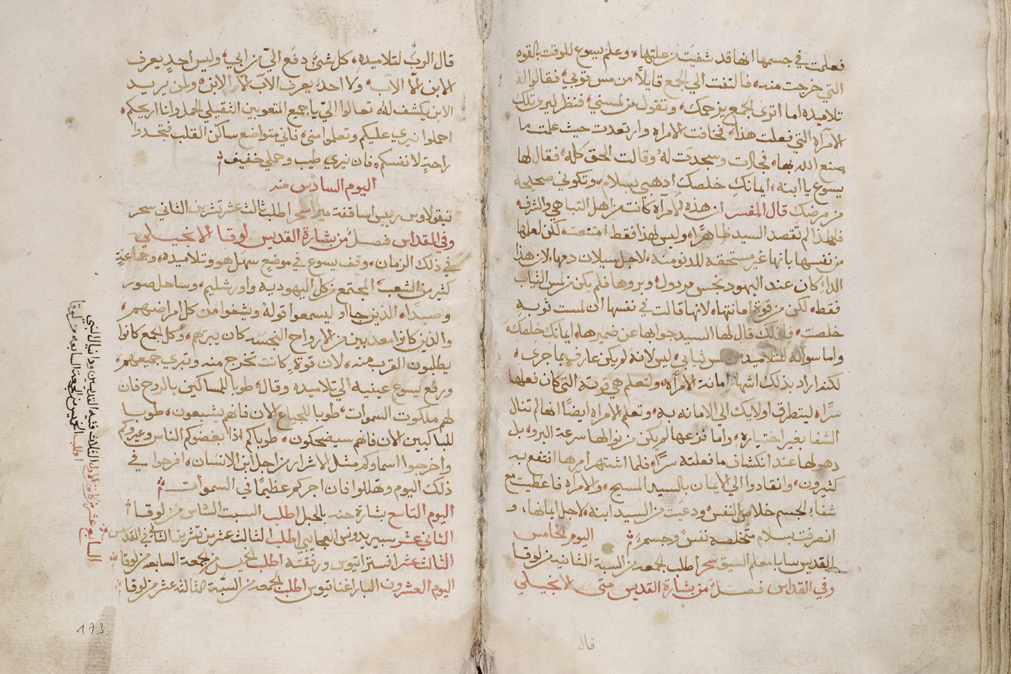 فعلمت في جسمها انها قد شفيت من علتها، وعلم يسوع للوقت بالقوه
التي خرجت منه، فالتفت الي الجمع قايلاً من مس ثوبي، فقالوا له
تلاميذه اما تري الجمع يزحمك، وتقول من لمسني، فنظر ليري تلك
الامراه التي فعلت هذا، فخافت الامراه وارتعدت حيث علمت ما
صنع الله بها، فجات وسجدت له وقالت الحق كله، فقال لها
يسوع يا ابنه، ايمانك خلصك اذهبي بسلام، وتكوني صحيحه
من مرضك قال المفسر ان هذه الامرأة كانت من اهل
فلهذا لم تقصد السيد ظاهرًا، وليس لهذا فقط امتنعت، لكن لعلمها
من نفسها بانها غير مستحقه للدنو منه، لاجل سيلان دمها، لان هذا
الداء كان عند اليهود نجس مرذول، فلم يكن لمس الثياب
فقط، لكن من قوة امانتها، لانها قالت في نفسها ان لمست ثوبه
خلصت، فلذلك قال لها السيد جوابها عن ضميرها، ايمانك خلصك،
واما سواله للتلاميذ ليس لانه لم يكن عارف بما جري،
لكنه اراد بذلك اشهار امانة الامرأه، ولتعلم هي قوته التي كان فعلها
سرًا، ليتطرق اولايك الي الامانه به، وتعلم الامراه ايضًا انها لم تنال
الشفا بغير اختياره، واما فزعها لم يكن سرعة البرو، بل
دهولها عند انكشاف ما فعلته سرًا، فلما اشتهر امرها انتفع به
كثيرون، وانقادوا الي الايمان بالسيد المسيح، والامراه فاعطيت مع
شفاء الجسم خلاص النفس، ودعيت من السيد ابنه، لاجل ايمانها، و
انصرفت بسلام متخلصه نفس وجسم، اليوم الخامس
القديس سابا معلم السيق سحر اطلب الجمعه من السبة الثانيه من لوقا
وفي القداس فصل من بشارة القديس متي الانجيلي
قال
قال الرب لتلاميذه، كل شيء دفع الي من ابي، وليس احد يعرف
الابن الا الاب، ولا احد يعرف الاب الا الابن، ولمن يريد
الابن يكشف له، تعالوا الي يا جميع المتعوبين الثقيلي الحمل وانا اريحكم،
احملوا نيري عليكم وتعلموا مني، فاني متواضع ساكن القلب فتجدوا
راحة لانفسكم، فان نيري طيب وحملي خفيف
اليوم السادس منه
نيقولاوس رييس اساقفة ميرا سحر اطلب ثالث عشر تشرين الثاني سحر
وفي القداس فصل من بشارة القديس لوقا الانجيلي
في ذلك الزمان، وقف يسوع في موضع سهل هو وتلاميذه، وجماعة
كثير من الشعب المجتمع من كل اليهودية واورشليم، وساحل صور
وصيدا، الذين جاوا ليسمعوا قوله ويشفوا من كل امراضهم،
والذين كانوا معذبين من الارواح النجسه كان يبريهم، وكل الجمع كانوا
يطلبون القرب منه، لان قوة كانت تخرج منه وتبري جميعهم،
ورفع يسوع عينيه الي تلاميذه وقال، طوبا للمساكين بالروح فان
لهم ملكوت السموات، طوبا للجياع الان فانهم يشبعون، طوبا
للباكيين الان فانهم سيضحكون، طوباكم اذا ابغضوكم الناس وعيروكم
واخرجوا اسماوكم مثل الاشرار من اجل ابن الانسان، افرحوا في
ذلك اليوم وتهللوا فان اجركم عظيمًا في السموات
اليوم التاسع بشارة حنه بالحبل اطلب السبت الثامن من لوقا
الثاني عشر سبيريدونس العجايبي اطلب الثالث عشر من تشرين الثاني في القداس
الثالث عشر افستراتيوس ورفقته اطلب الخميس من الجمعه السابعه من لوقا
اليوم العشرون البار اغناتيوس اطلب الجمعه من السبة الثالثه عشر من لوقا
السابع عشر من كانون الاول الثلاث فتيه القديسين ودانيال النبي
اطلب الخميس من الجمعة السابعه من لوقا
173